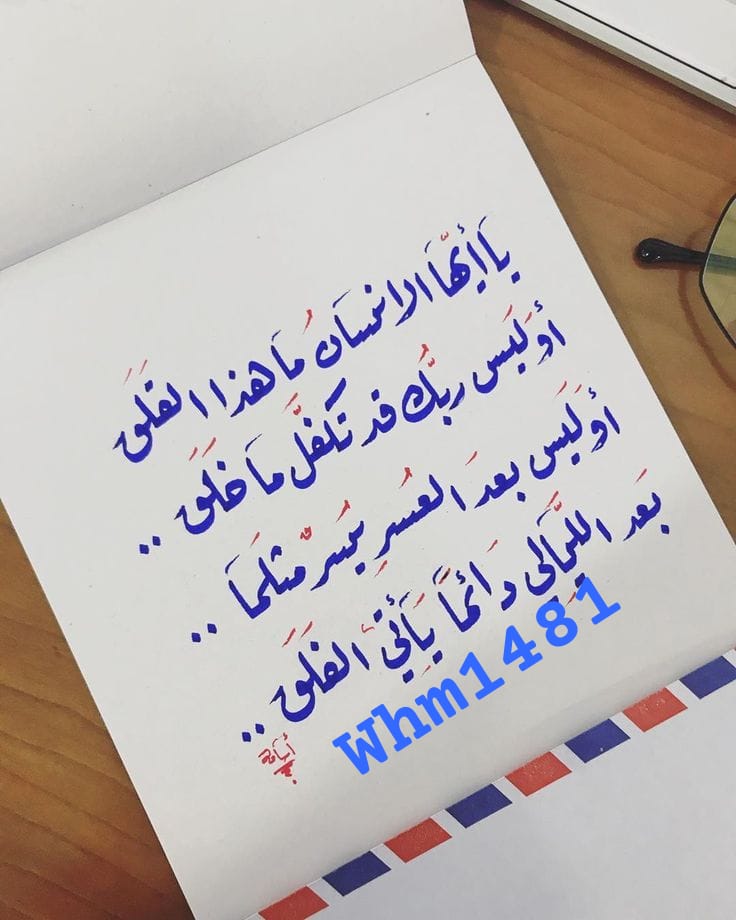 يَا أيّهَا الانسَانُ مَا هذا القلَق
أوَلَيَس ربُّك قد تكفَّل مَا خلَق ..
أوَلَيَس بعدَ العُسرِ يُسرٌ مثلمَا ..
بعَد الليَّالِي دَائماً يَأتِي الفلَق ..
Whm1481